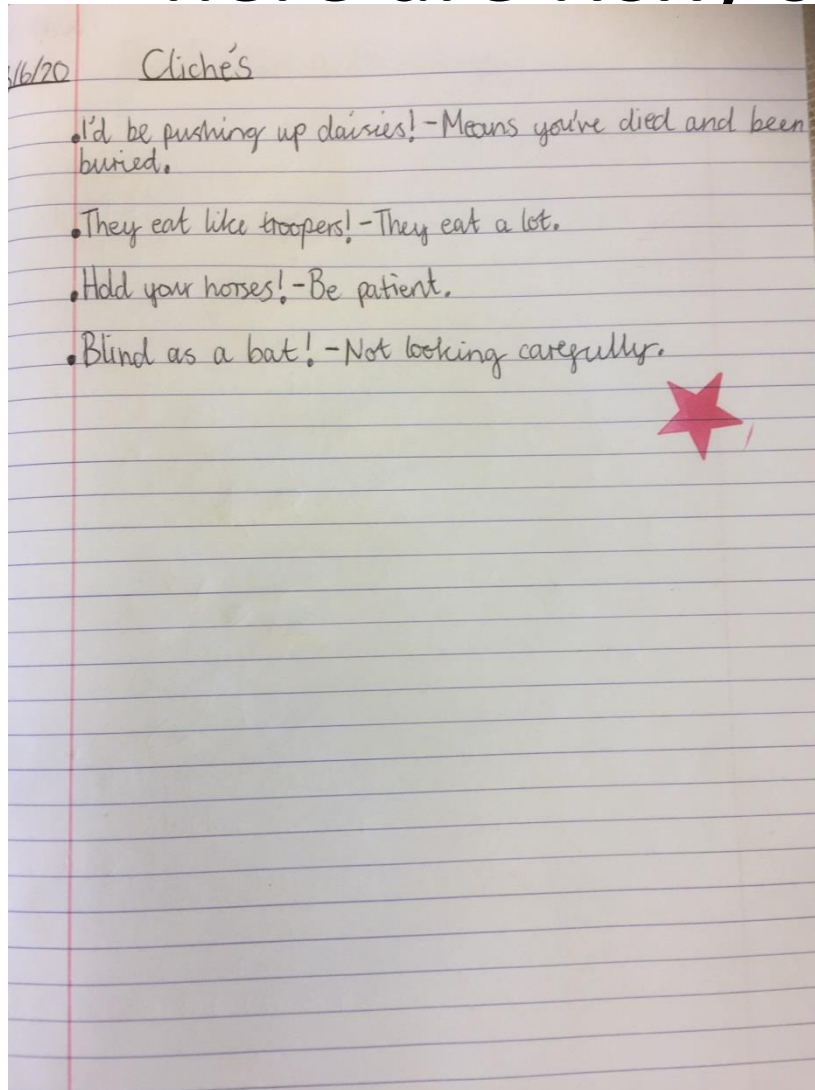 /6/20 Clichés
•I'd be pushing up daisies! - Means you've died and been
buried.
•They eat like troopers! - They eat a lot.
•Hold your horses! - Be patient.
•Blind as a bat! - Not looking carefully.